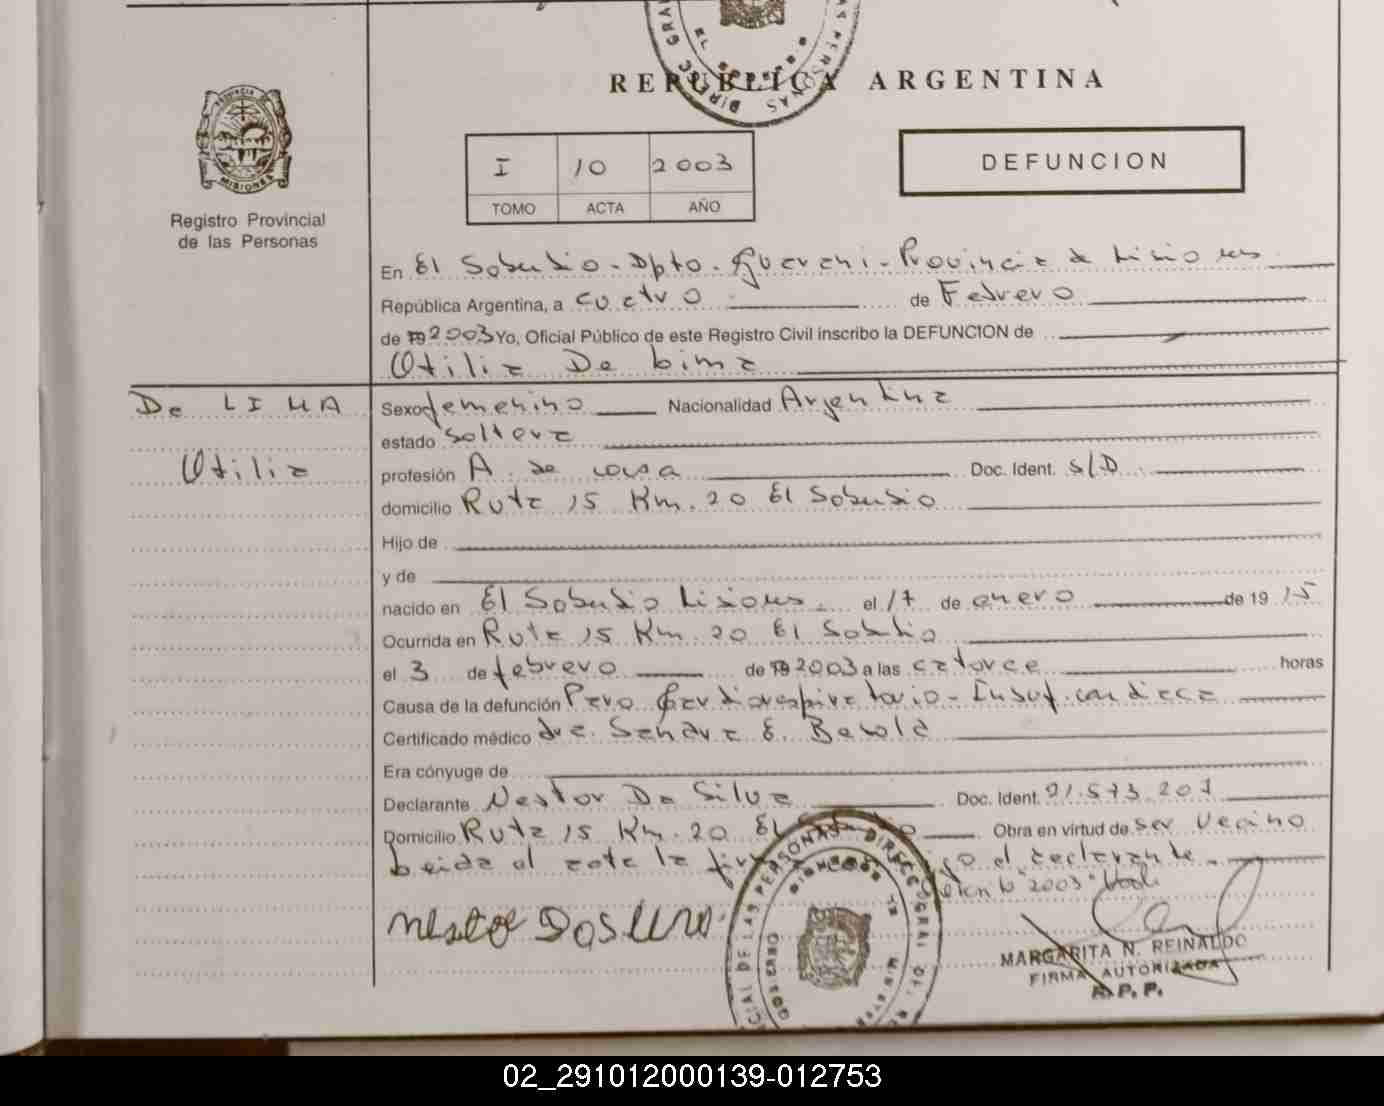 REPUBLICA ARGENTINA
PROVINCIA DE
MISIONES
Registro Provincial
de las Personas
I 10 2003
TOMO ACTA AÑO
DEFUNCION
En El Soberbio - Dpto. Guarani - Provincia de Misiones
República Argentina, a cuatro de Febrero
de 19 2003 Yo, Oficial Público de este Registro Civil inscribo la DEFUNCION de
Otilia De Lima
De LIMA
Otilia
Sexo femenino Nacionalidad Argentina
estado soltera
profesión A. de casa Doc. Ident. S/D
domicilio Ruta 15 Km. 20 El Soberbio
Hijo de
y de
nacido en El Soberbio Misiones el 17 de enero de 19 15
Ocurrida en Ruta 15 Km. 20 El Soberbio
el 3 de febrero de 19 2003 a las catorce horas
Causa de la defunción Paro Cardiorespiratorio - Insuf. cardiaca
Certificado médico dra. Sandra E.
Era cónyuge de
Declarante Nestor Da Silva Doc. Ident.
Domicilio Ruta 15 Km. 20 El Obra en virtud de ser vecino
Leida el acta la el declarante
"2003" Vale
MARGARITA N. REINALDO
FIRMA AUTORIZADA
R.P.P.
02_291012000139-012753